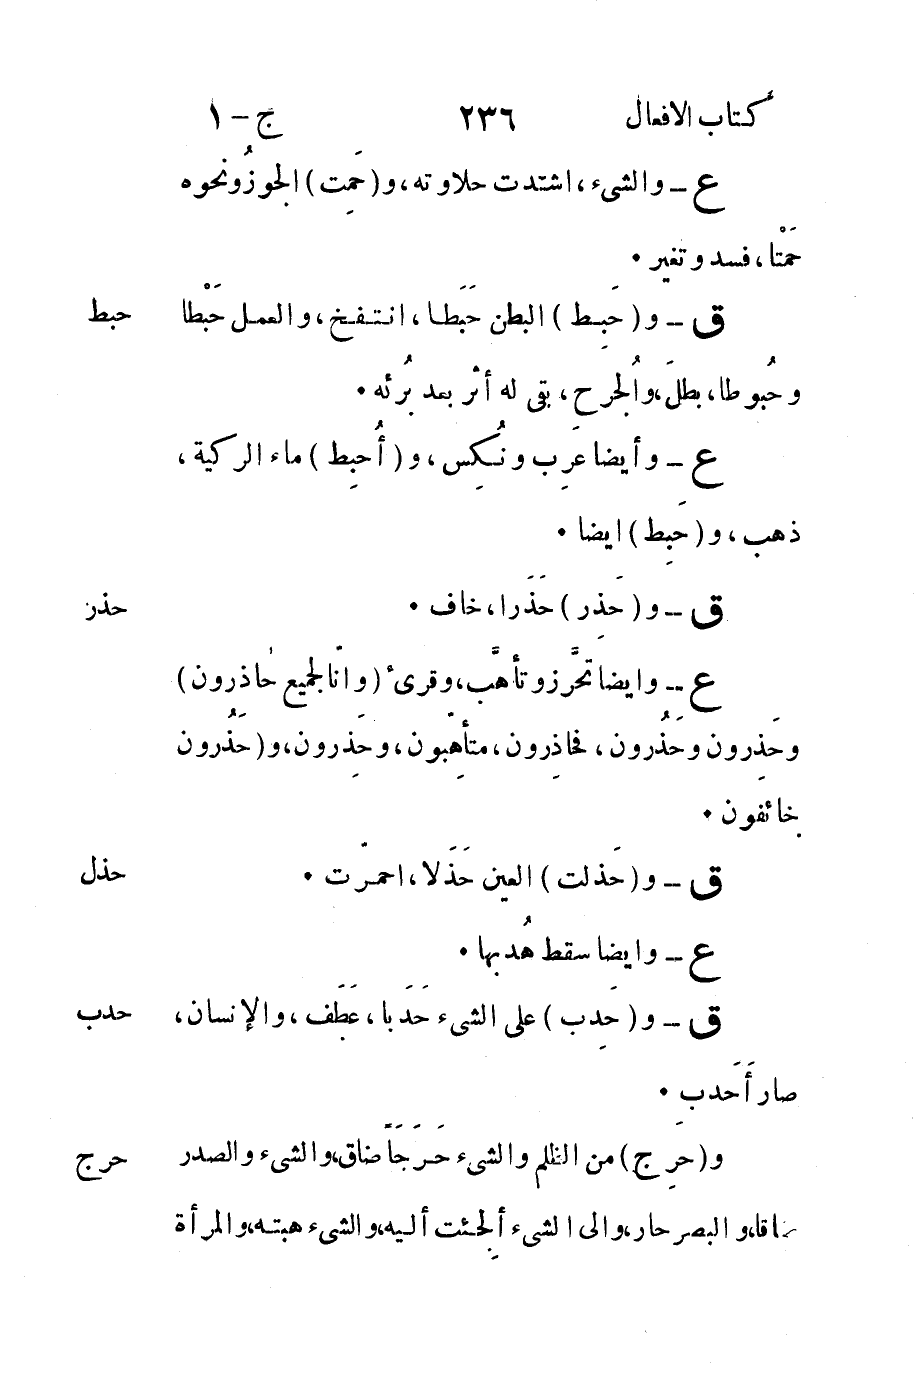 كتاب الافعال ٢٣٦ ج - ١
ع - والشىء، اشتدت حلاوته، و (حَمِت) الجوزُ ونحوه
حَمْتا، فسد وتغير •
ق - و (حَبِط) البطن حَبَطا، انتفخ، والعمل حَبْطا حبط
وحُبوطا، بطلَ، والُجرح، بقى له أثر بعد بُرئه •
ع - وأيضا عَرِب ونُكِس، و (أُحبِط) ماء الركية،
ذهب، و (حَبِط) ايضا •
ق - و (حَذِر) حَذَرا، خاف • حذر
ع - وايضا تحَّرز وتأهَّب، وقرئ (وانّا لجميع حاذرون)
وحَذِرون وحَذُرون، فحاذِرون، متأهِّبون، وحَذِرون، و (حَذُرون
خائفون •
ق - و (حَذلت) العين حَذَلا، احمرّت • حذل
ع - وايضا سقط هُدبها •
ق - و (حَدِب) على الشىء حَدَبا، عَطَف، والإنسان، حدب
صار أَحَدب •
و (حَرِج) من الظلم والشىء حَرَجاً ضاق، والشىء والصدر حرج
ضاقا، و البصر حار، والى الشىء ألجِئت أليه، والشىء هبته، والمرأة